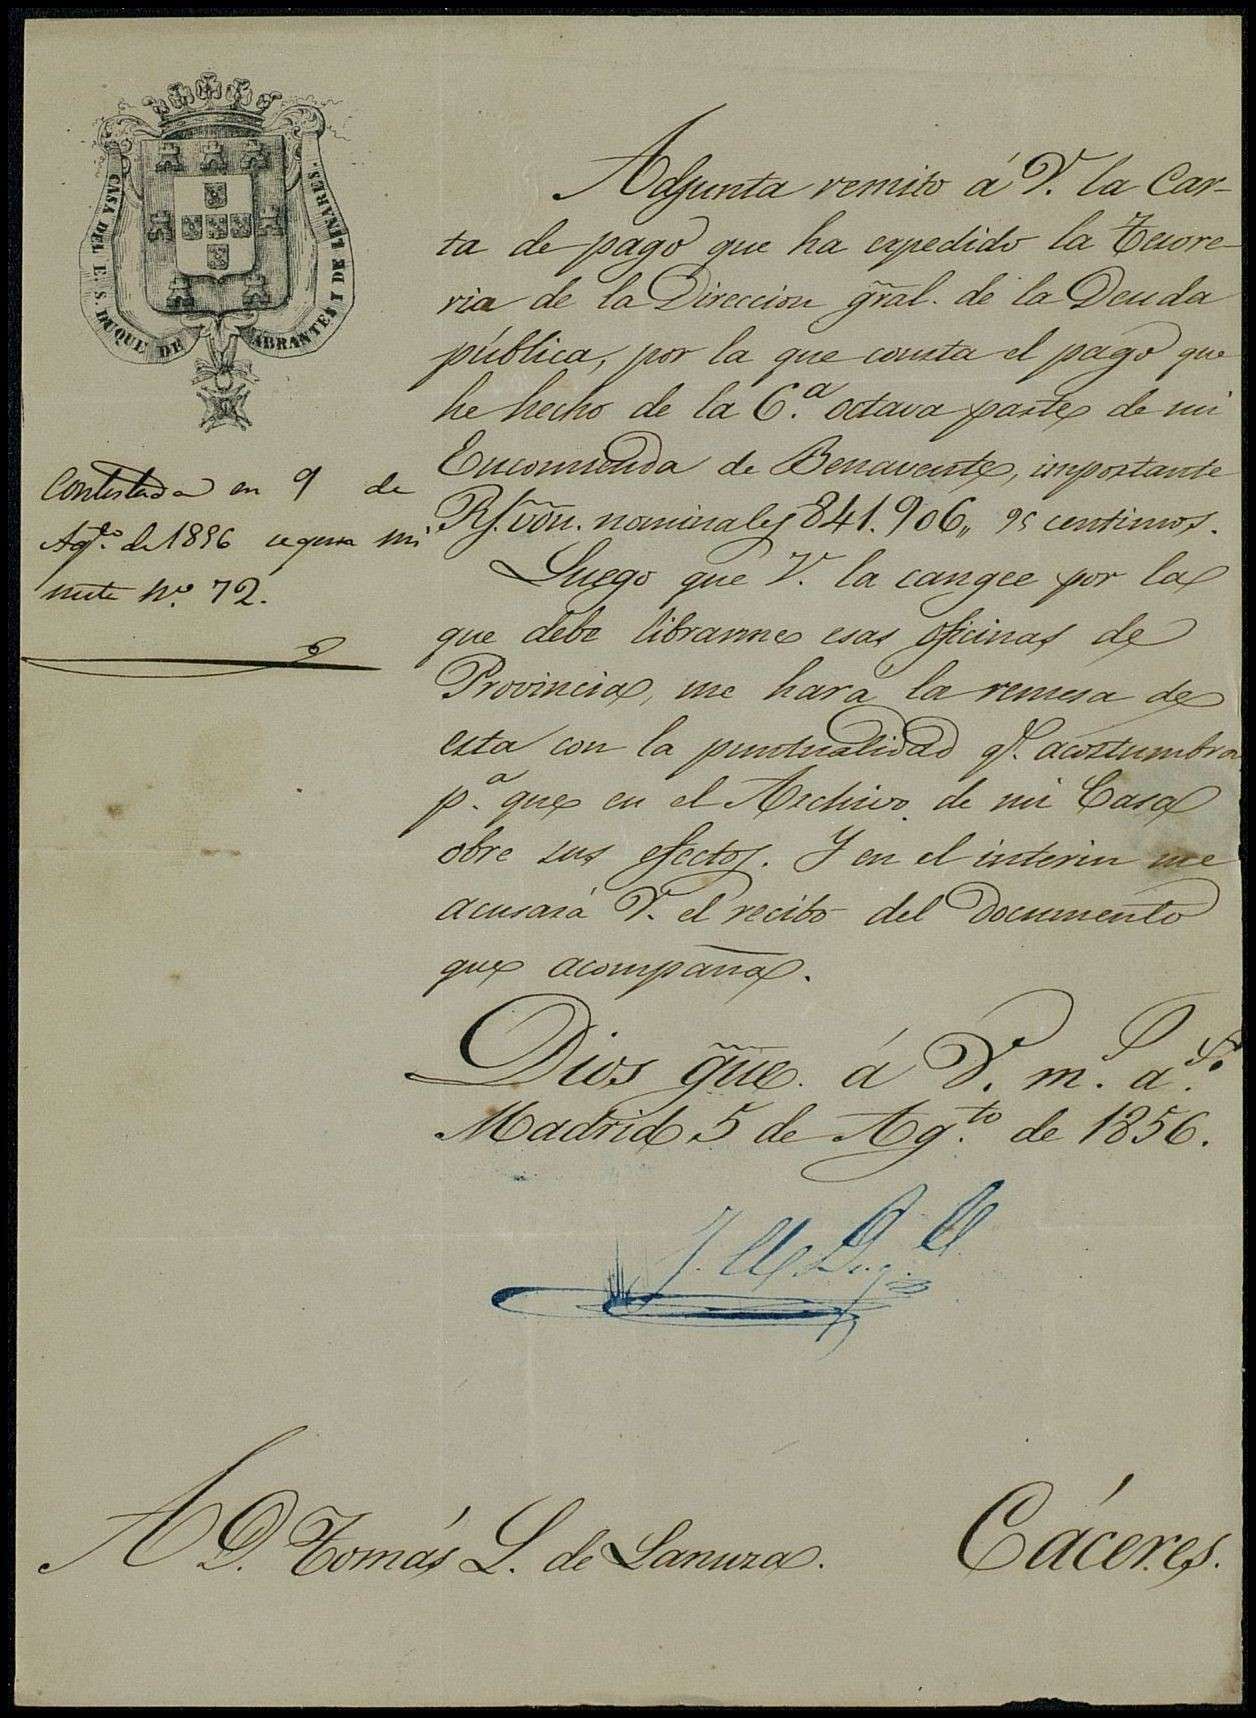 CASA DEL E. S. DUQUE DE ABRANTES Y DE LINARES.
Contestada en 9 de
Agto. de 1856 segun mi
nuta No. 72.
Adjunta remito á V. la Car-
ta de pago que ha expedido la Tesore-
ria de la Direccion gral. de la Deuda
pública, por la que consta el pago que
he hecho de la 6.a octava parte de mi
Encomienda de Benavente, importante
Rs. von. nominales 841.906,, 95 centimos.
Luego que V. la cangee por la
que debe librarme esas oficinas de
Provincia, me hará la remesa de
esta con la puntualidad q.e acostumbra
p.a que en el Archivo de mi Casa
obre sus efectos. Y en el interin me
acusará V. el recibo del documento
que acompaña.
Dios gue. á V. m.s a.s
Madrid 5 de Ag.to de 1856.
A D. Tomás L. de Lanuza.
Cáceres.